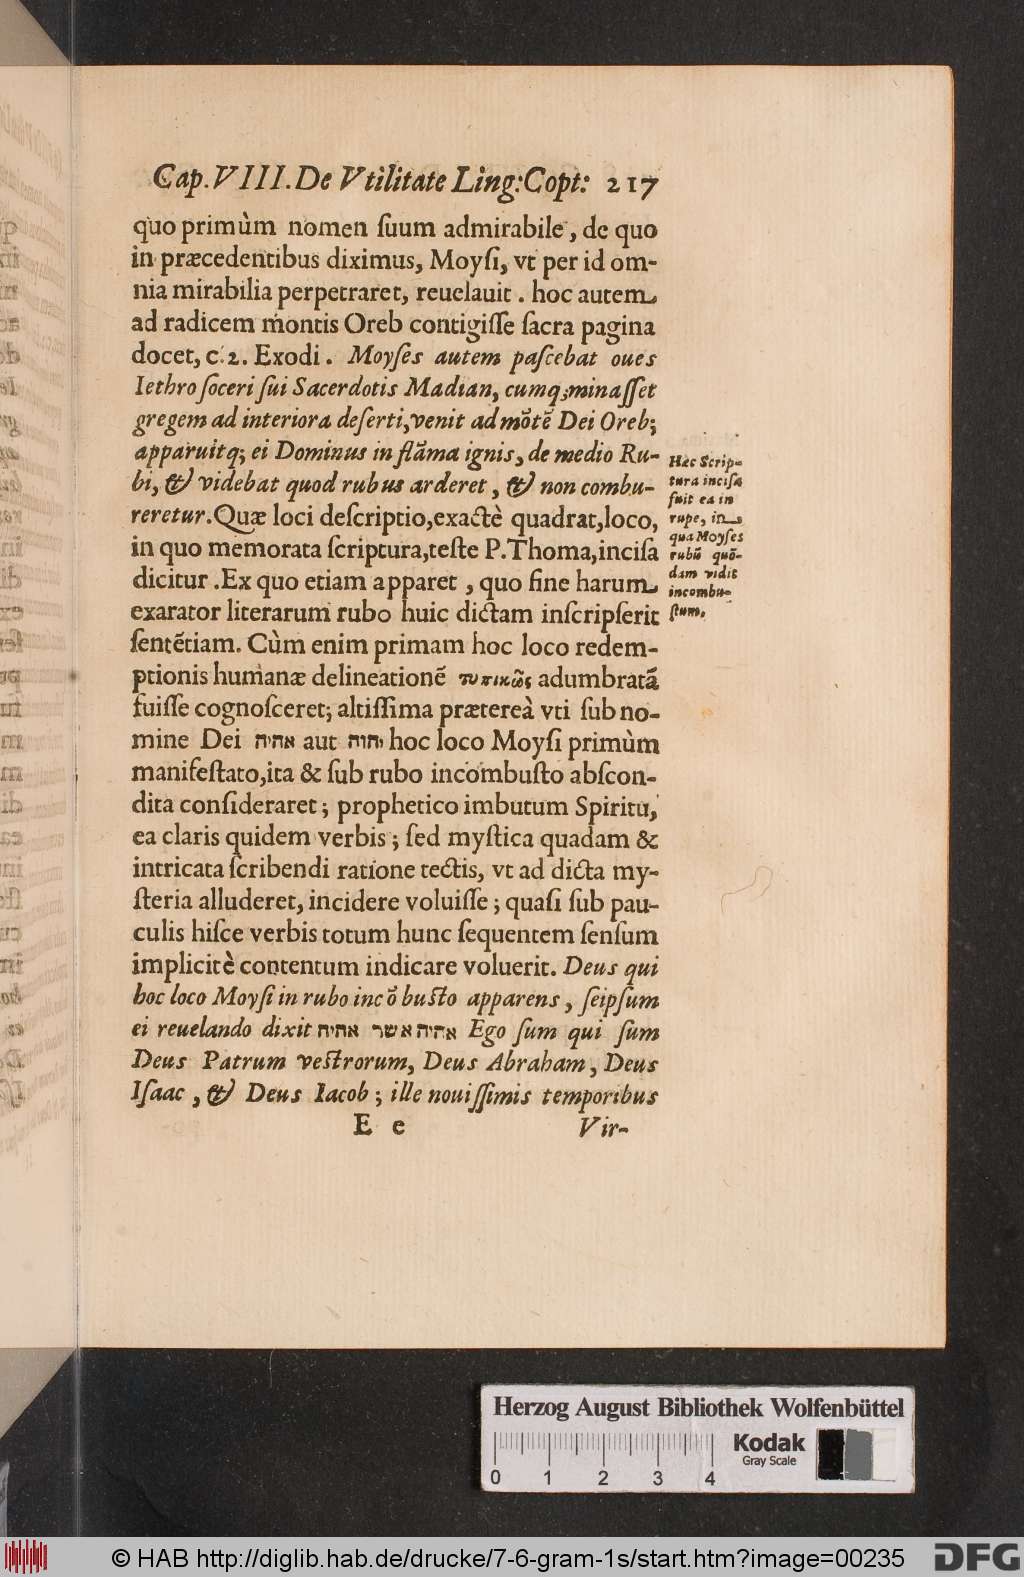 Cap. VIII. De Vtilitate Ling: Copt: 217
quo primùm nomen ſuum admirabile, de quo
in præcedentibus diximus, Moyſi, vt per id om-
nia mirabilia perpetraret, reuelauit. hoc autem
ad radicem montis Oreb contigiſſe ſacra pagina
docet, c. 2. Exodi. Moyſes autem paſcebat oues
Iethro ſoceri ſui Sacerdotis Madian, cumq; minaſſet
gregem ad interiora deſerti, venit ad mõtẽ Dei Oreb;
apparuitq; ei Dominus in flãma ignis, de medio Ru-
bi, & videbat quod rubus arderet, & non combu-
reretur. Quæ loci deſcriptio, exactè quadrat, loco,
in quo memorata ſcriptura, teſte P. Thoma, inciſa
dicitur. Ex quo etiam apparet, quo fine harum
exarator literarum rubo huic dictam inſcripſerit
ſentẽtiam. Cùm enim primam hoc loco redem-
ptionis humanæ delineationẽ τυπικῶς adumbratã
fuiſſe cognoſceret; altiſſima prætereà vti ſub no-
mine Dei אהיה aut יהוה hoc loco Moyſi primùm
manifeſtato, ita & ſub rubo incombuſto abſcon-
dita conſideraret; prophetico imbutum Spiritu,
ea claris quidem verbis; ſed myſtica quadam &
intricata ſcribendi ratione tectis, vt ad dicta my-
ſteria alluderet, incidere voluiſſe; quaſi ſub pau-
culis hiſce verbis totum hunc ſequentem ſenſum
implicitè contentum indicare voluerit. Deus qui
hoc loco Moyſi in rubo incõbuſto apparens, ſeipſum
ei reuelando dixit אהיה אשר אהיה Ego ſum qui ſum
Deus Patrum veſtrorum, Deus Abraham, Deus
Iſaac, & Deus Iacob; ille nouiſſimis temporibus
E e Vir-
Hæc Scrip-
tura inciſa
fuit ea in
rupe, in
qua Moyſes
rubũ quõ-
dam vidit
incombu-
ſtum.
Herzog August Bibliothek Wolfenbüttel
Kodak
Gray Scale
0 1 2 3 4
© HAB http://diglib.hab.de/drucke/7-6-gram-1s/start.htm?image=00235
DFG